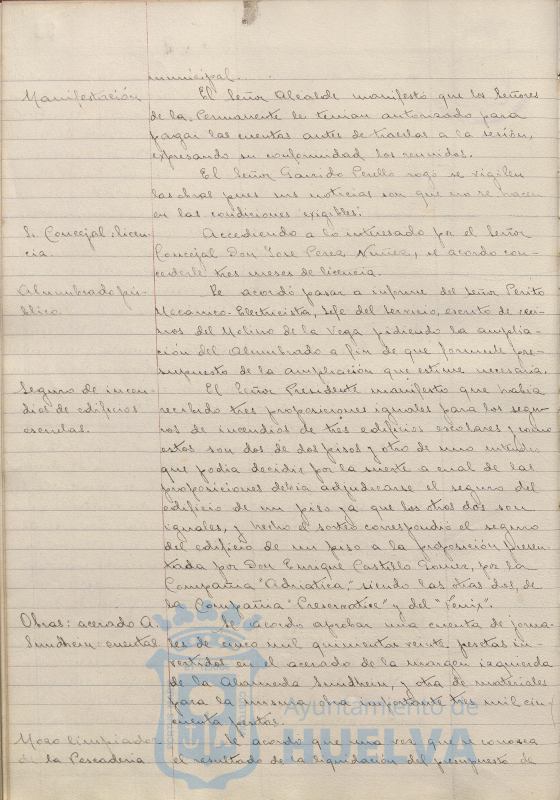 municipal.
Manifestación El Señor Alcalde manifestó que los Señores
de la Permanente le tenian autorizado para
pagar las cuentas antes de traerlas a la sesión,
expresando su conformidad los reunidos.
El Señor Garrido Perello rogó se vigilen
las obras pues sus noticias son que no se hacen
en las condiciones exigibles.
Sr. Concejal: licen- Accediendo a lo interesado por el Señor
cia. Concejal Don Jose Perez Nuñez, se acordo con-
cederle tres meses de licencia.
Alumbrado pú- Se acordó pasar a informe del Señor Perito
blico. Mecanico-Electricista, Jefe del Servicio, escrito de veci-
nos del Molino de la Vega pidiendo la amplia-
ción del Alumbrado a fin de que formule pre-
supuesto de la ampliación que estime necesaria.
Seguro de incen- El Señor Presidente manifesto que habia
dios de edificios recibido tres proposiciones iguales para los segu-
escuelas. ros de incendios de tres edificios escolares y como
estos son dos de dos pisos y otro de uno
que podia decidir por la suerte a cual de las
proposiciones debia adjudicarse el seguro del
edificio de un piso ya que los otros dos son
iguales, y hecho el sorteo correspondió el seguro
del edificio de un piso a la proposición presen-
tada por Don Enrique Castillo Gomez, por la
Compañia "Adriatica", siendo las otras dos, de
la Compañia "Preservatrice" y del "Fenix".
Obras: acerado A. Se acordo aprobar una cuenta de jorna-
Sundheim: cuentas les de cinco mil quinientas veinte pesetas in-
vertidos en el acerado de la margen izquierda
de la Alameda Sundheim, y otra de materiales
para la misma obra importante tres mil cin-
cuenta pesetas.
Mozo limpiador Se acordó que una vez que se conozca
de la Pescaderia el resultado de la liquidación del presupuesto de
Ayuntamiento de
HUELVA